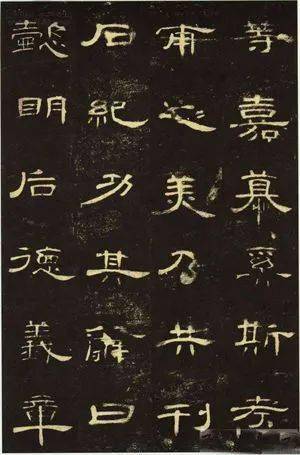 等嘉慕奚斯考
甫之美乃共刊
石紀功其辭曰
懿明后德義章